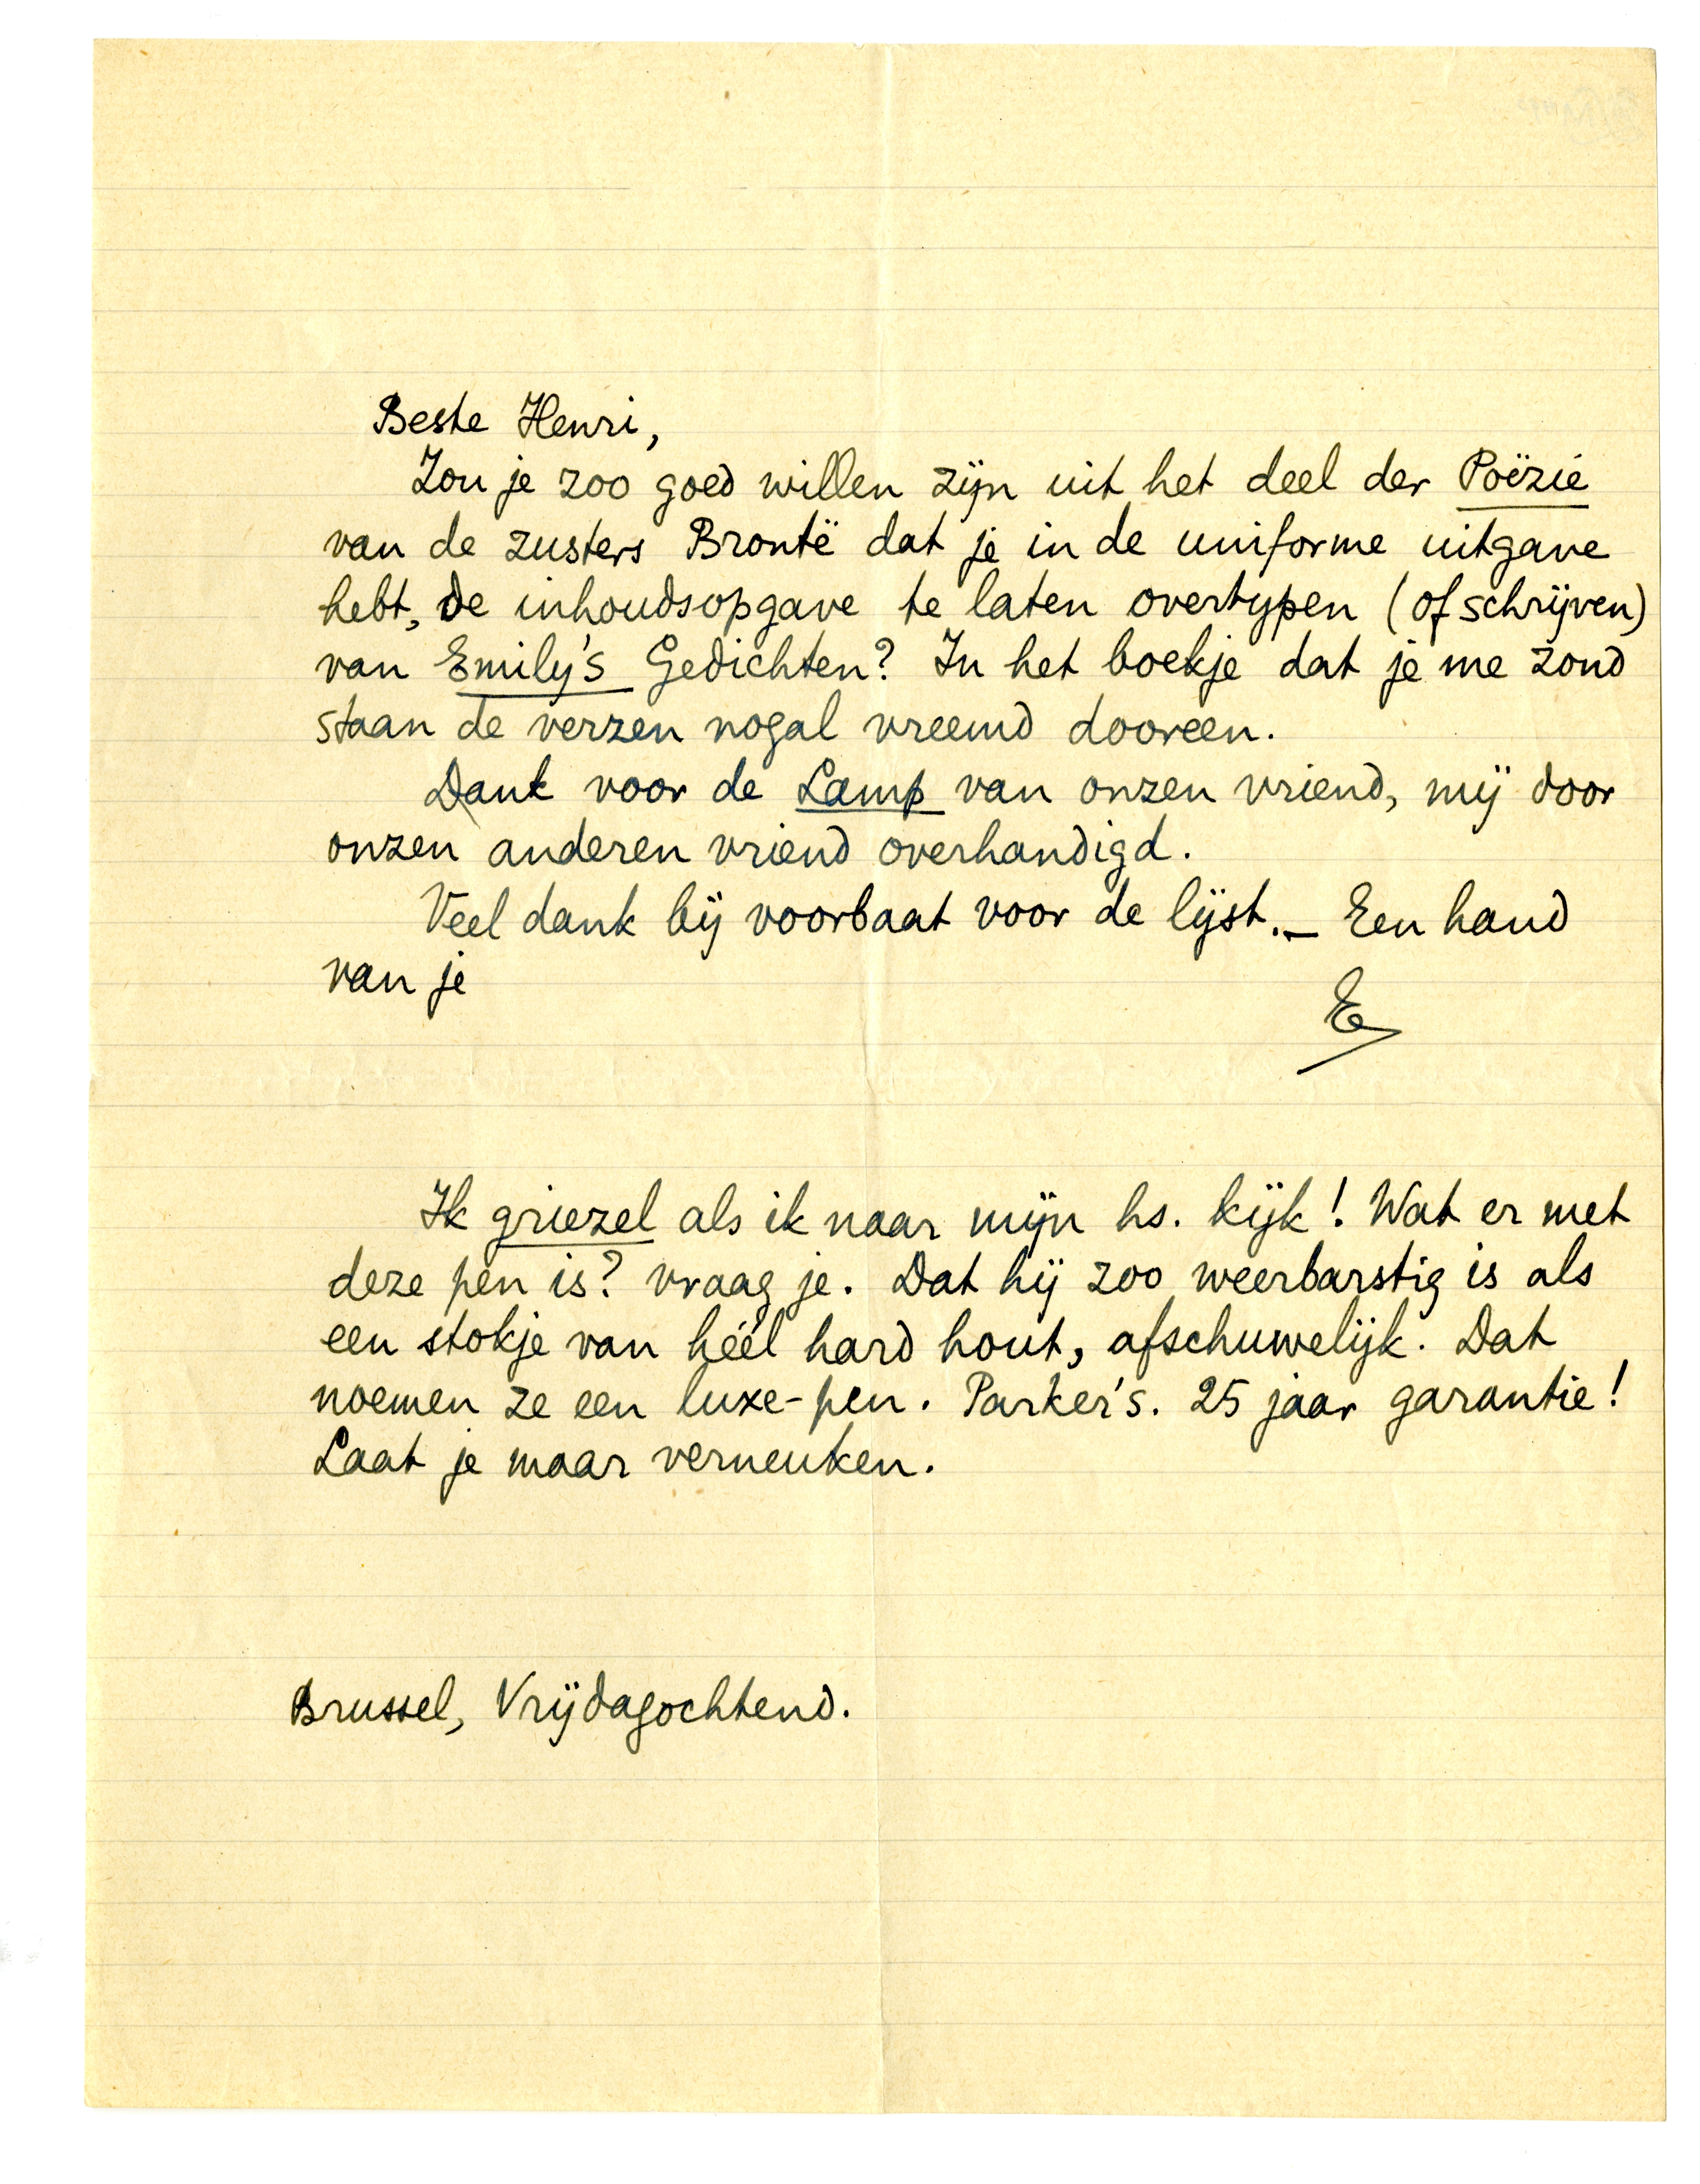 Beste Henri,
Zou je zoo goed willen zijn uit het deel der Poëzie
van de zusters Brontë dat je in de uniforme uitgave
hebt, de inhoudsopgave te laten overtypen (of schrijven)
van Emily's Gedichten? In het boekje dat je me zond
staan de verzen nogal vreemd dooreen.
Dank voor de Lamp van onzen vriend, mij door
onzen anderen vriend overhandigd.
Veel dank bij voorbaat voor de lijst. — Een hand
van je
E
Ik griezel als ik naar mijn hs. kijk! Wat er met
deze pen is? vraag je. Dat hij zoo weerbarstig is als
een stokje van héél hard hout, afschuwelijk. Dat
noemen ze een luxe-pen. Parker's. 25 jaar garantie!
Laat je maar verneuken.
Brussel, Vrijdagochtend.